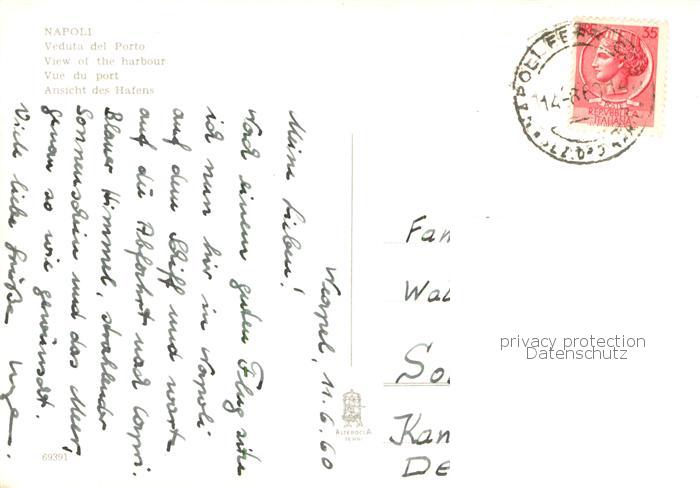 NAPOLI
Veduta del Porto
View of the harbour
Vue du port
Ansicht des Hafens
Neapel, 11.6.60
Meine Lieben!
Nach einem guten Flug sitze
ich nun hier in Napoli
auf dem Schiff und warte
auf die Abfahrt nach Capri.
Blauer Himmel, strahlender
Sonnenschein und das Meer,
genau so wie gewünscht.
Viele liebe Grüße
69391
ALTEROCCA
TERNI
35
POSTE
REPVBBLICA
ITALIANA
NAPOLI FERR
Fam
Wal
So
Kan
De
privacy protection
Datenschutz